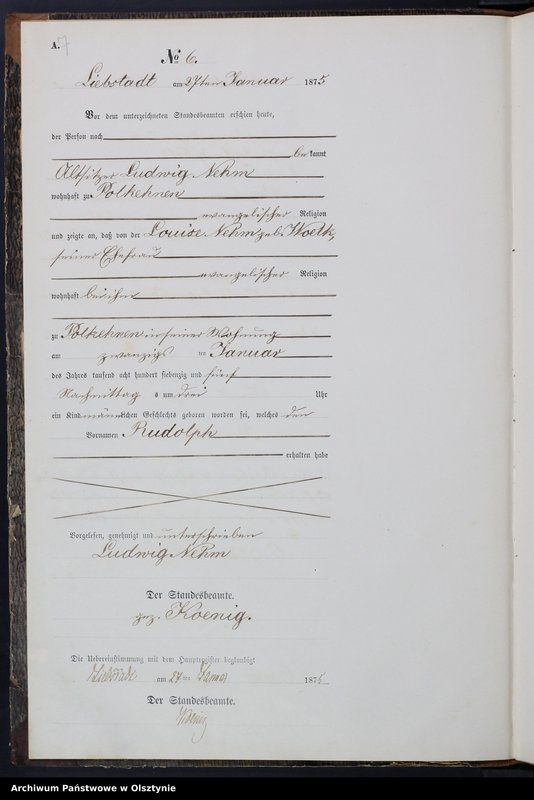 A. 7
No 6.
Liebstadt am 27ten Januar 1875
Vor dem unterzeichneten Standesbeamten erschien heute,
der Person nach
bekannt
Altsitzer Ludwig Nehm
wohnhaft zu Polkehnen
evangelischer Religion
und zeigte an, daß von der Louise Nehm geb. Woelk,
seiner Ehefrau
evangelischer Religion
wohnhaft bei ihm
zu Polkehnen in seiner Wohnung
am zwanzigsten Januar
des Jahres tausend acht hundert siebenzig und fünf
Nachmittags um drei Uhr
ein Kind männlichen Geschlechts geboren worden sei, welches den
Vornamen Rudolph
erhalten habe
Vorgelesen, genehmigt und unterschrieben
Ludwig Nehm
Der Standesbeamte.
gez. Koenig.
Die Uebereinstimmung mit dem Hauptregister beglaubigt
Liebstadt am 27ten Januar 1875
Der Standesbeamte.
Koenig
Archiwum Państwowe w Olsztynie